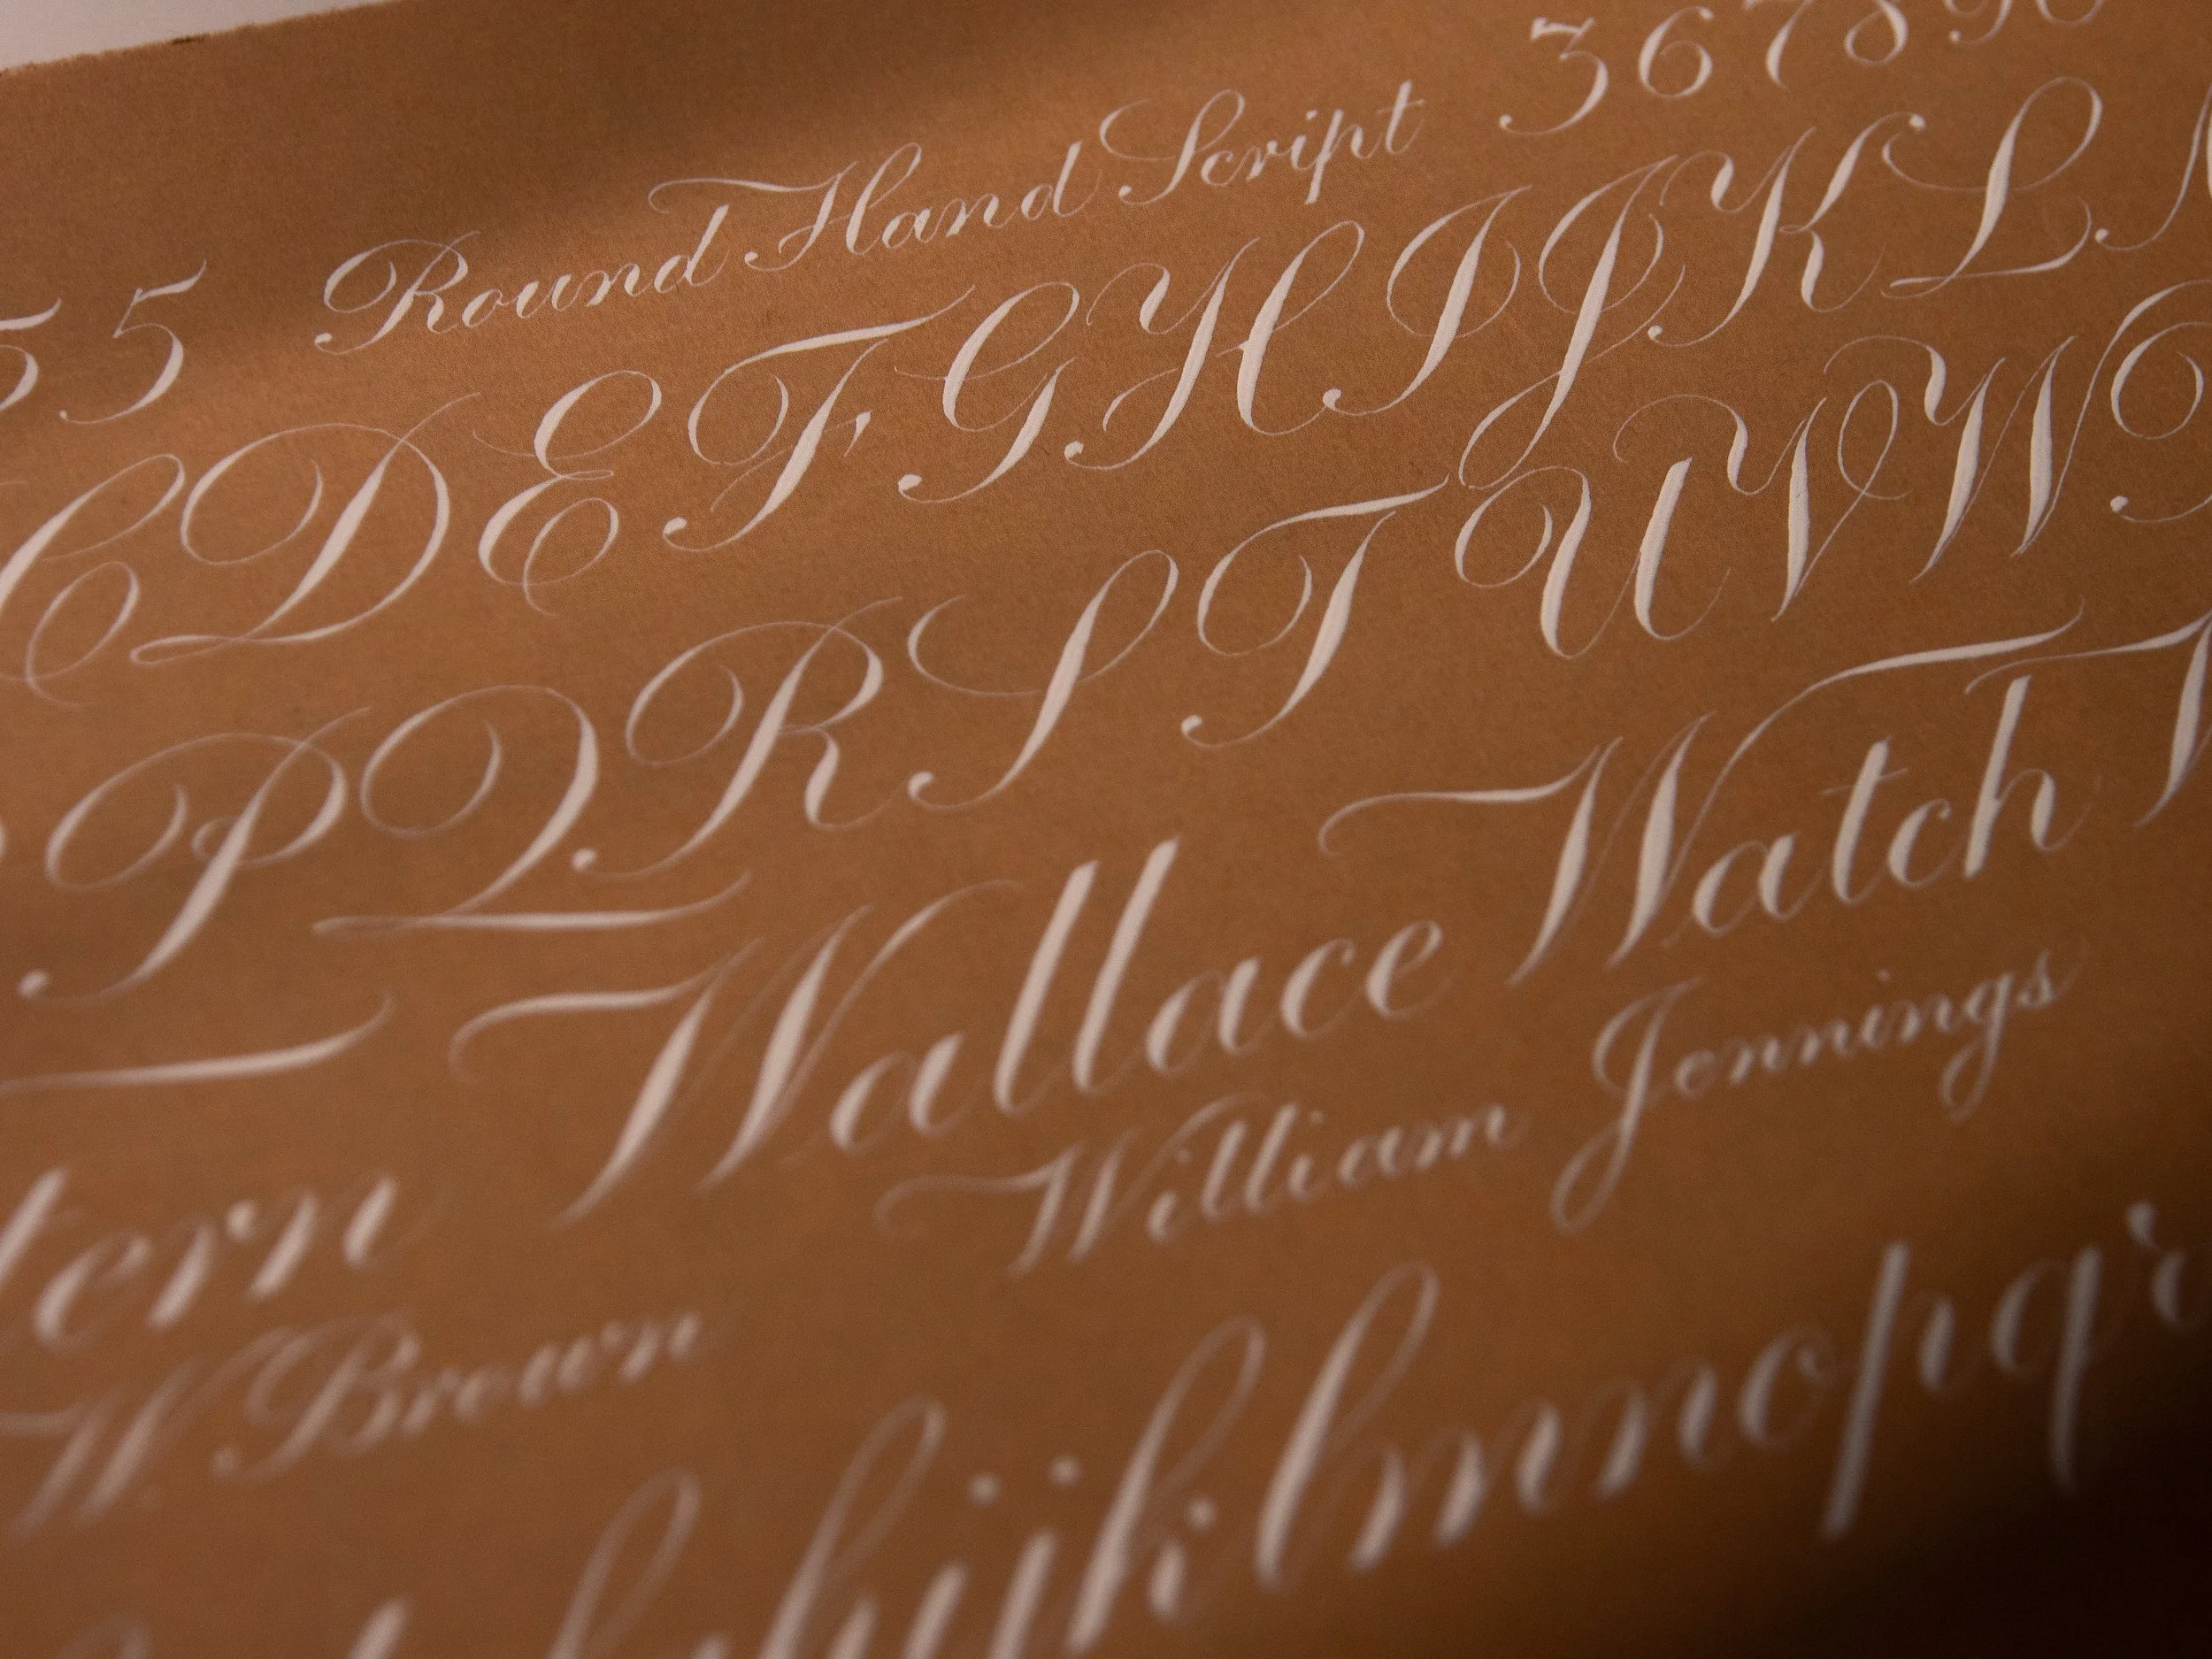 5 5 Round Hand Script 3 6 7 8 9 0
C D E F G H I J K L
P Q R S T U V W
Wallace Watch
tern William Jennings
W. Brown
h i j k l m n o p q r